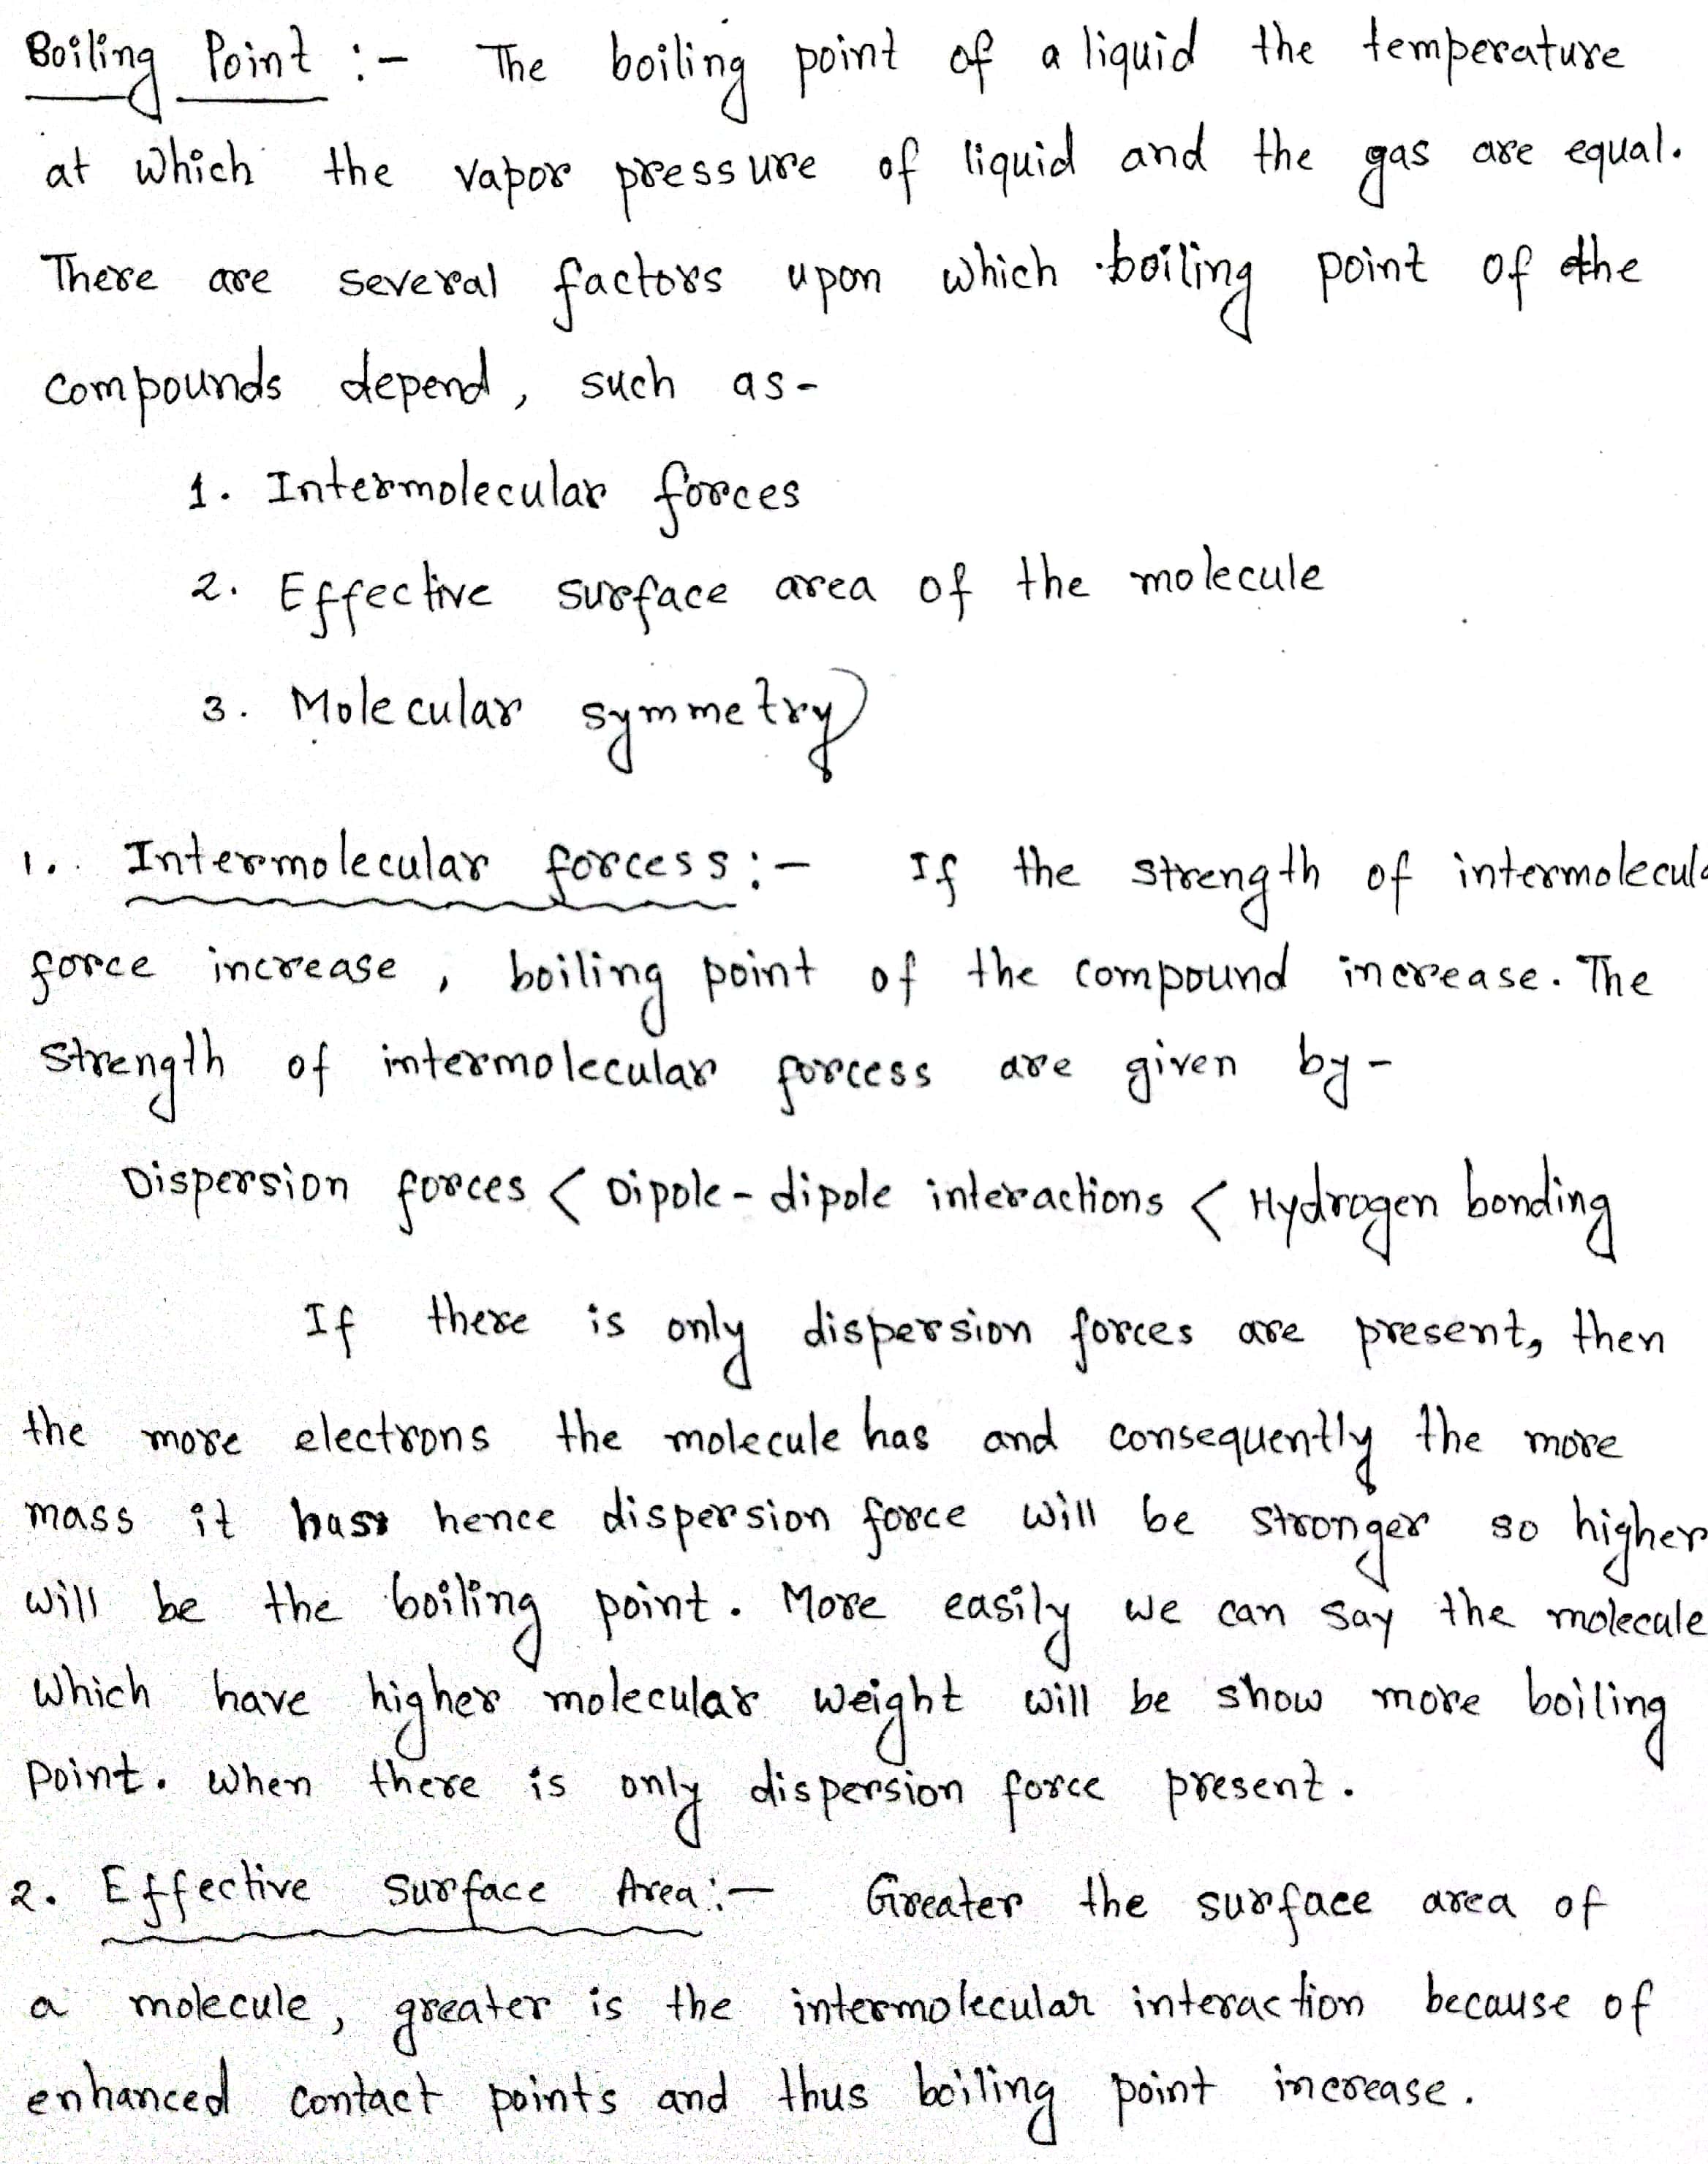 Boiling Point :- The boiling point of a liquid the temperature
at which the vapor pressure of liquid and the gas are equal.
There are several factors upon which boiling point of the
compounds depend, such as-
1. Intermolecular forces
2. Effective surface area of the molecule
3. Molecular symmetry
1. Intermolecular forcess :- If the strength of intermolecula
force increase, boiling point of the compound increase. The
strength of intermolecular forcess are given by-
Dispersion forces < Dipole-dipole interactions < Hydrogen bonding
If there is only dispersion forces are present, then
the more electrons the molecule has and consequently the more
mass it has hence dispersion force will be stronger so higher
will be the boiling point. More easily we can say the molecule
which have higher molecular weight will be show more boiling
point. When there is only dispersion force present.
2. Effective Surface Area :- Greater the surface area of
a molecule, greater is the intermolecular interaction because of
enhanced contact points and thus boiling point increase.